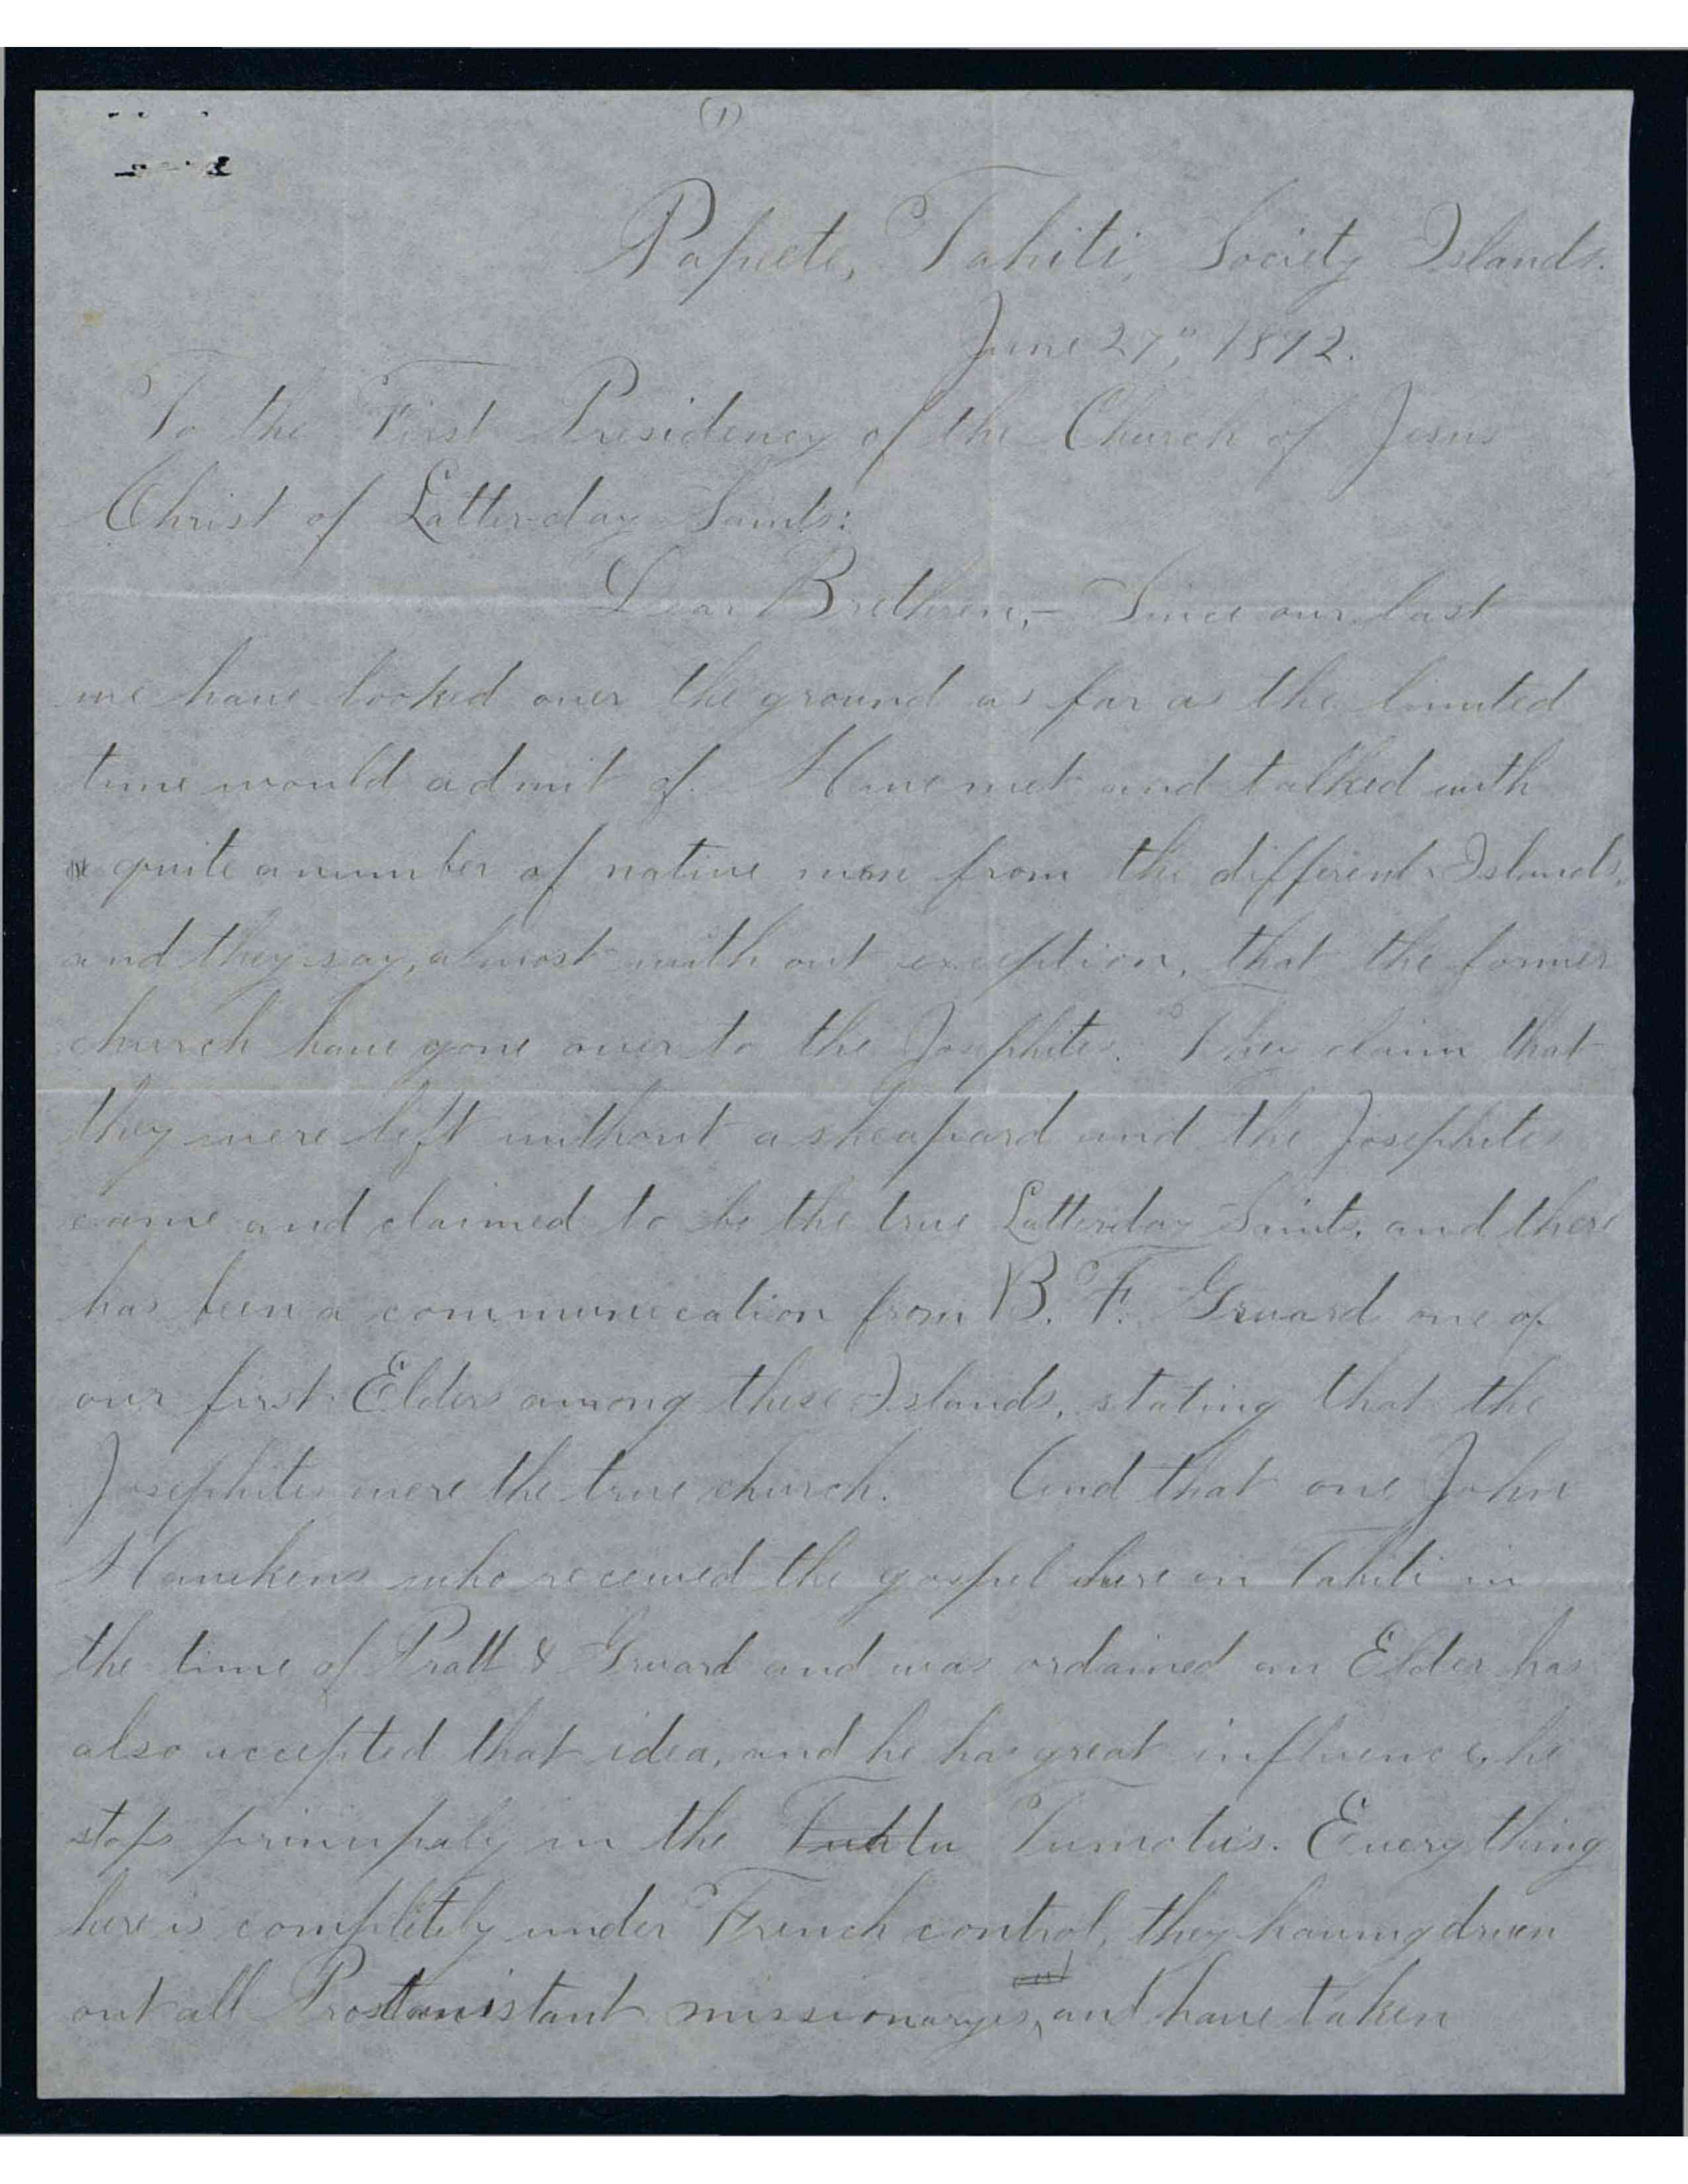 (1)
Papeete, Tahiti, Society Islands.
June 27", 1892.
To the First Presidency of the Church of Jesus
Christ of Latter-day Saints:
Dear Brethren,— Since our last
we have looked over the ground as far as the limited
time would admit of. Have met and talked with
quite a number of native men from the different Islands,
and they say, almost with out exception, that the former
church have gone over to the Josephites. They claim that
they were left without a sheapard and the Josephites
came and claimed to be the true Latterday Saints, and there
has been a communication from B. F. Gruard one of
our first Elders among these Islands, stating that the
Josephites were the true church. And that one John
Hawkens who received the gospel here in Tahiti in
the time of Pratt & Gruard and was ordained an Elder has
also accepted that idea, and he has great influence, he
stops principaly in the Tumotu's. Every thing
here is complitely under French control, they having driven
out all missionaryes, and have taken